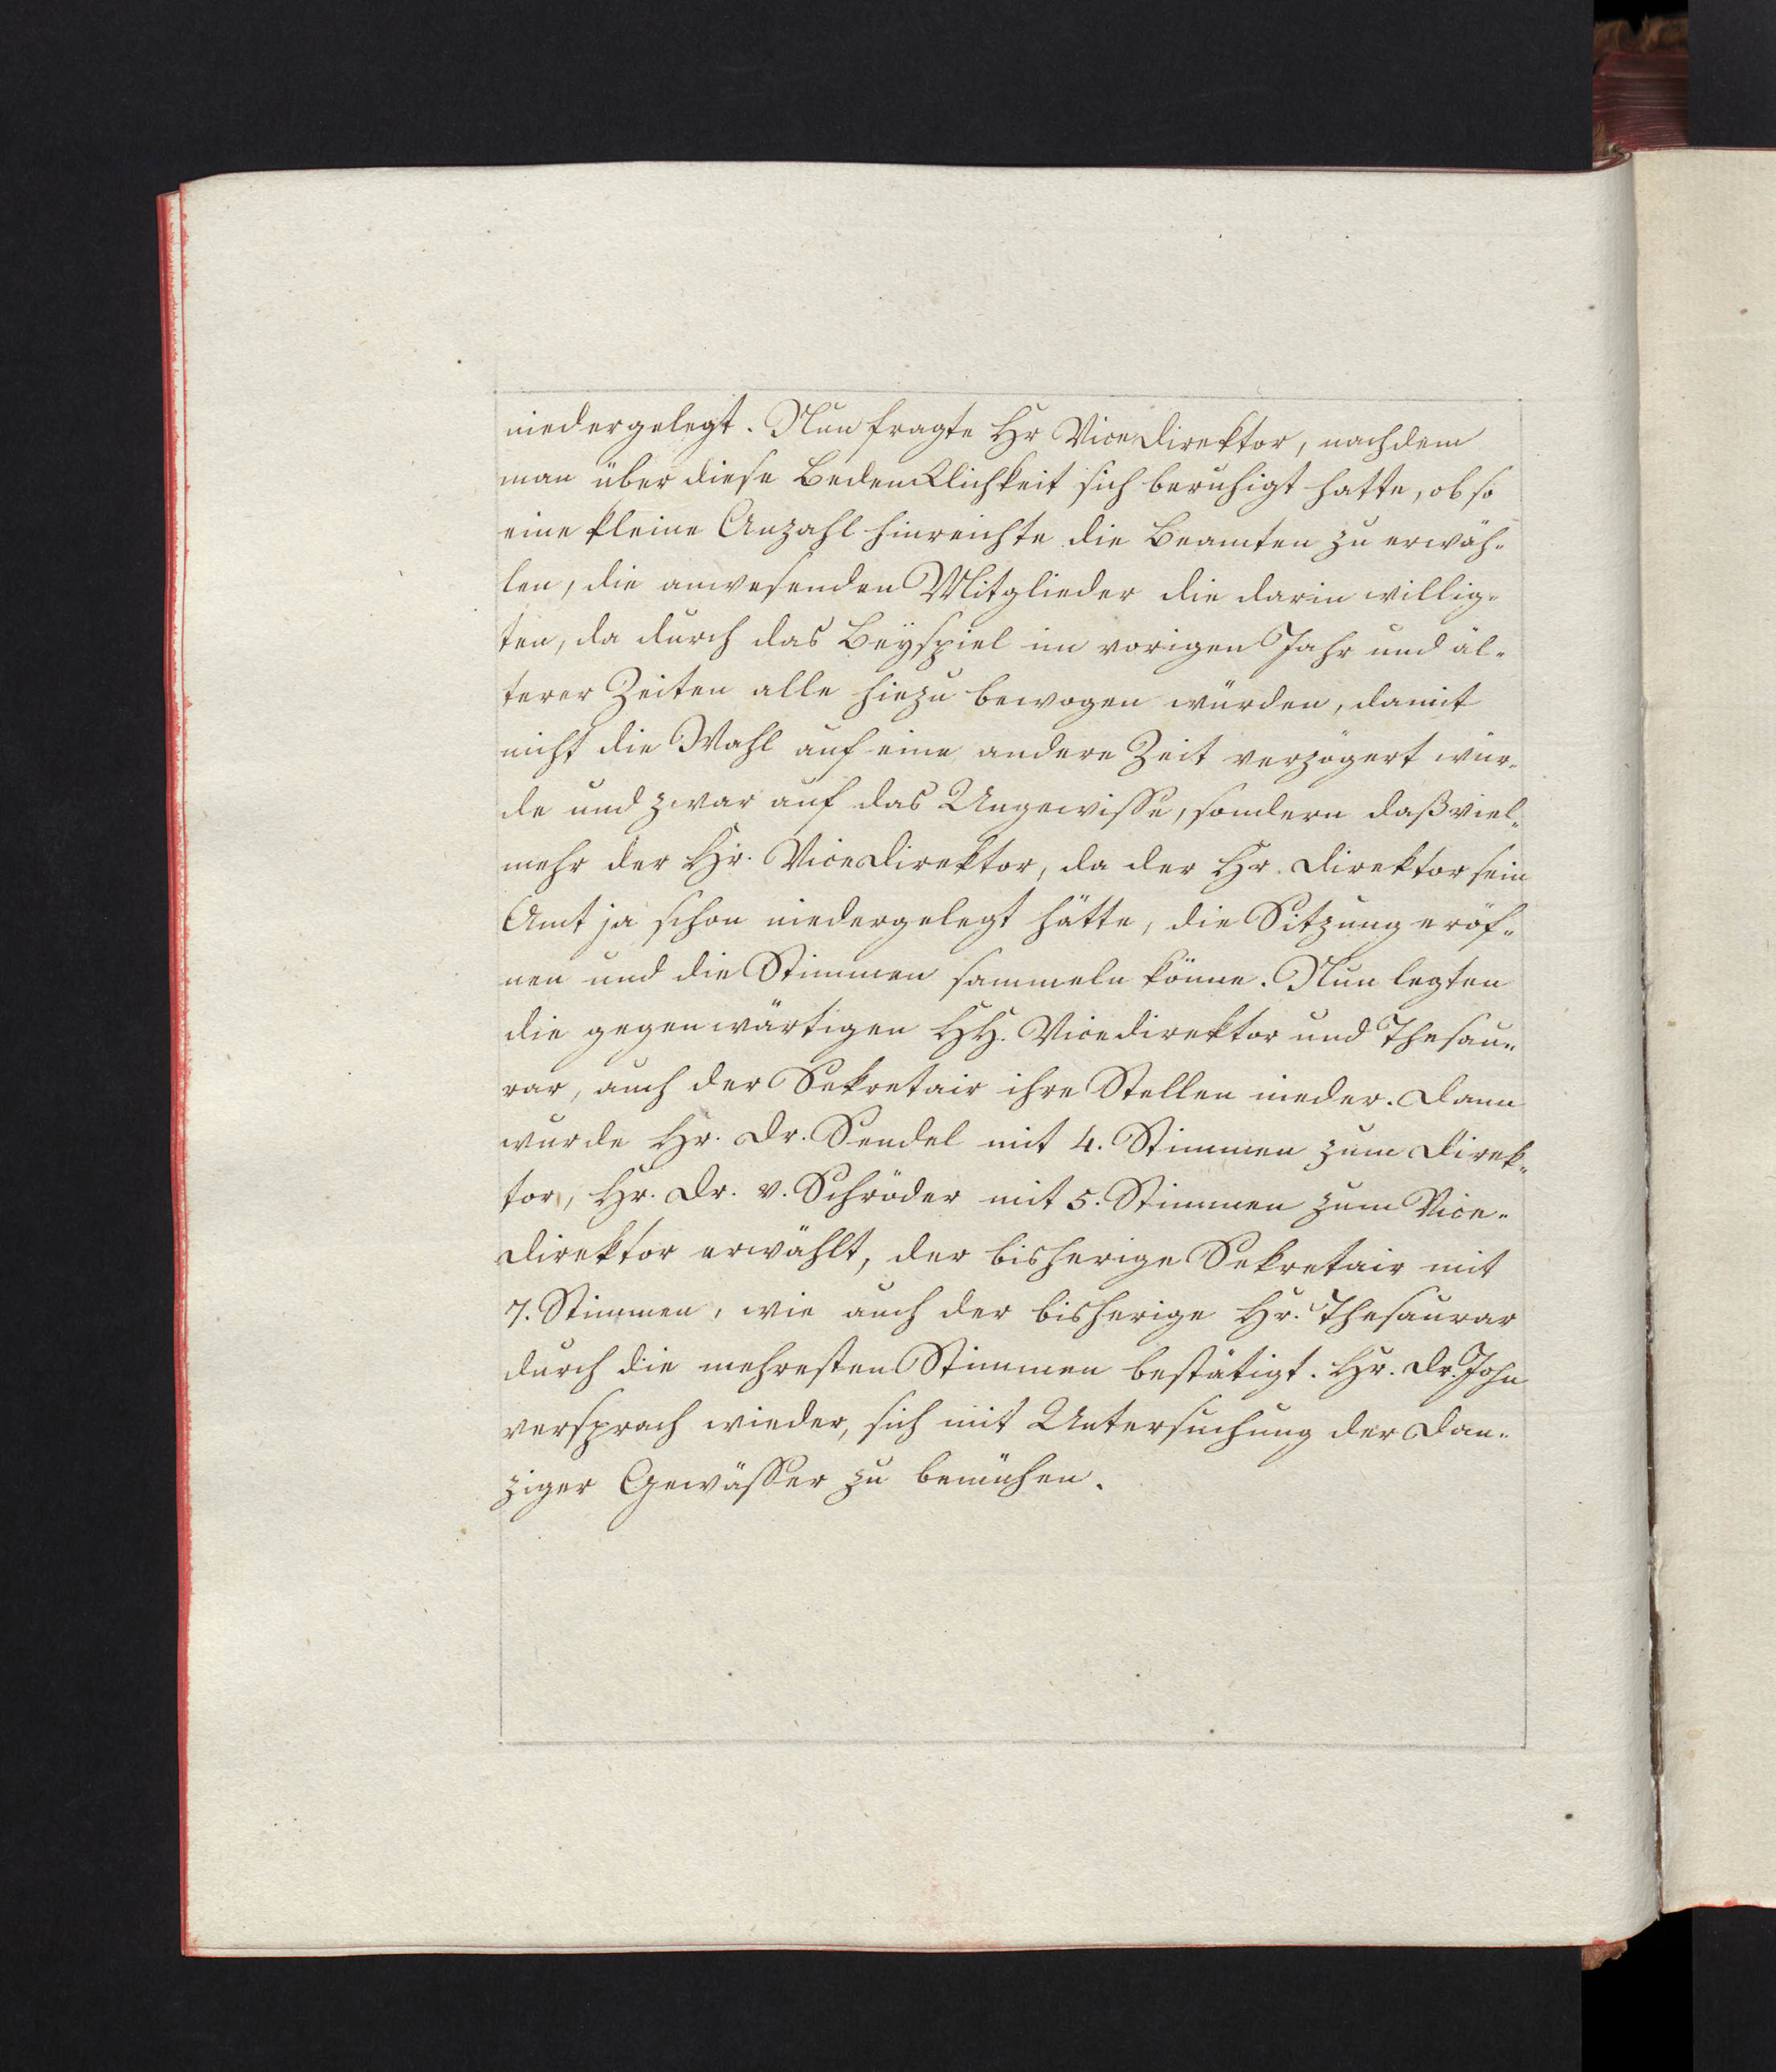 niedergelegt. Nun fragte Hr Vicedirektor, nachdem
man über diese Bedencklichkeit sich beruhigt hatte, ob so
eine kleine Anzahl hinreichte die Beamten zu erwäh-
len, die anwesenden Mitglieder die darin willig-
ten, da durch das Beyspiel im vorigen Jahr und äl-
terer Zeiten alle hiezu bewogen würden, damit
nicht die Wahl auf eine andere Zeit verzögert wür-
de und zwar auf das Ungewisse, sondern daß viel-
mehr der Hr. Vicedirektor, da der Hr. Direktor sein
Amt ja schon niedergelegt hätte, die Sitzung eröf-
nen und die Stimmen sammeln könne. Nun legten
die gegenwärtigen HH. Vicedirektor und Thesau-
rar, auch der Sekretair ihre Stellen nieder. Dann
wurde Hr. Dr. Sendel mit 4. Stimmen zum Direk-
tor, Hr. Dr. v. Schröder mit 5. Stimmen zum Vice-
direktor erwählt, der bisherige Sekretair mit
7. Stimmen, wie auch der bisherige Hr. Thesaurar
durch die mehresten Stimmen bestätigt. Hr. Dr. John
versprach wieder, sich mit Untersuchung der Dan-
ziger Gewässer zu bemühen.